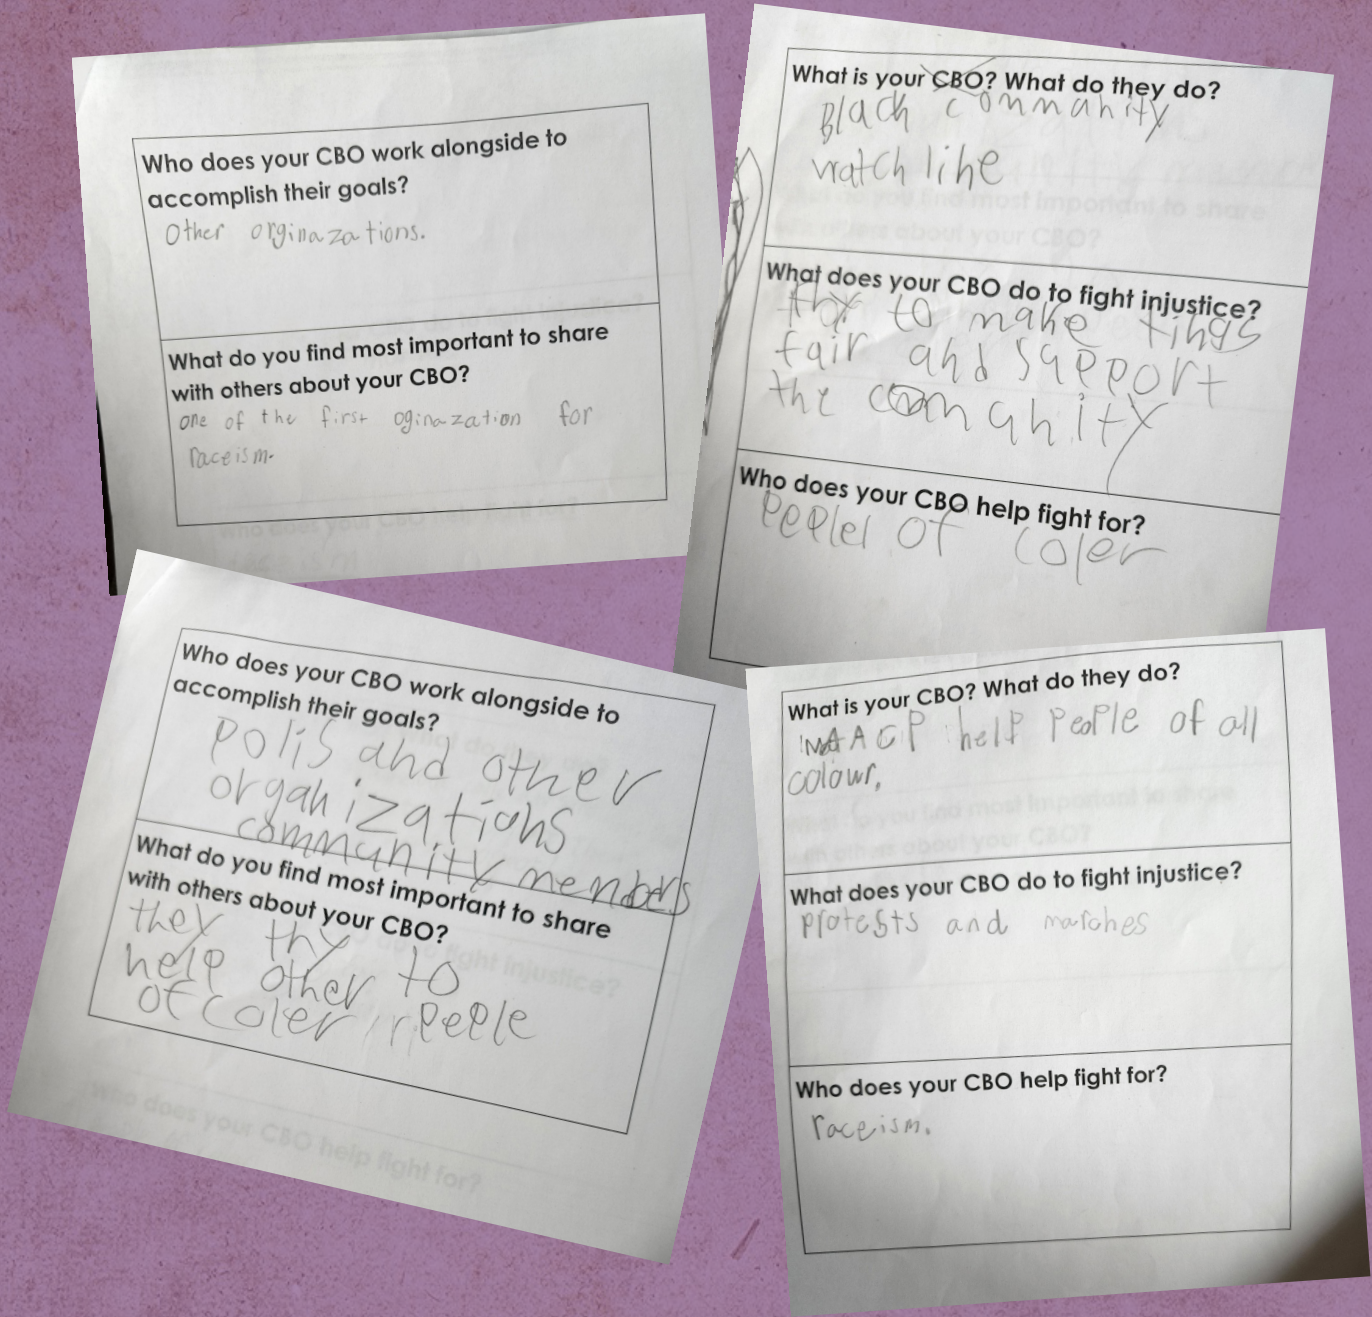 Who does your CBO work alongside to
accomplish their goals?
Other orginazations.
What do you find most important to share
with others about your CBO?
one of the first oginazation for
raceism.
What is your CBO? What do they do?
Black community
watch line
What does your CBO do to fight injustice?
thy to make tings
fair and support
the comunity
Who does your CBO help fight for?
peeple of coler
Who does your CBO work alongside to
accomplish their goals?
polis and other
organizations
community members
What do you find most important to share
with others about your CBO?
they thy
help other to
of coler peeple
What is your CBO? What do they do?
NAACP help people of all
colour.
What does your CBO do to fight injustice?
protests and marches
Who does your CBO help fight for?
raceism.